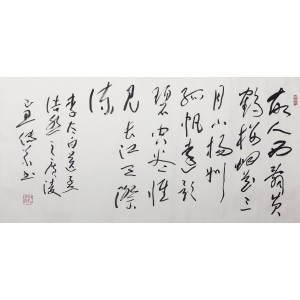 故人西辞黄
鹤楼烟花三
月下扬州
孤帆远影
碧空尽惟
见长江天际
流
李太白送孟
浩然之广陵
书